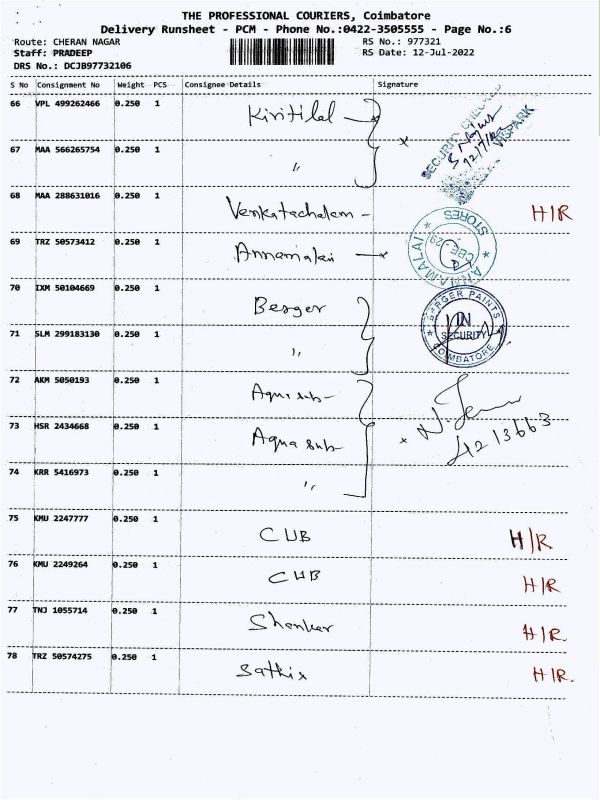 THE PROFESSIONAL COURIERS, Coimbatore
Delivery Runsheet - PCM - Phone No.:0422-3505555 - Page No.:6
Route: CHERAN NAGAR RS No.: 977321
Staff: PRADEEP RS Date: 12-Jul-2022
DRS No.: DCJB97732106
S No Consignment No Weight PCS Consignee Details Signature
66 VPL 499262466 0.250 1 Kiritilal
SECURITY CHECKED
12/7/22
67 MAA 566265754 0.250 1 "
68 MAA 288631016 0.250 1 Venkatachalam - H/R
69 TRZ 50573412 0.250 1 Annamalai
ANNAMALAI STORES CBE-29
70 IXM 50104669 0.250 1 Berger
BERGER PAINTS IN SECURITY COIMBATORE
71 SLM 299183130 0.250 1 "
72 AKM 5050193 0.250 1 Aqua sub-
73 HSR 2434668 0.250 1 Aqua sub-
74 KRR 5416973 0.250 1 "
75 KMU 2247777 0.250 1 CUB H/R
76 KMU 2249264 0.250 1 CUB H/R
77 TNJ 1055714 0.250 1 Shanker H/R.
78 TRZ 50574275 0.250 1 Sathix H/R.